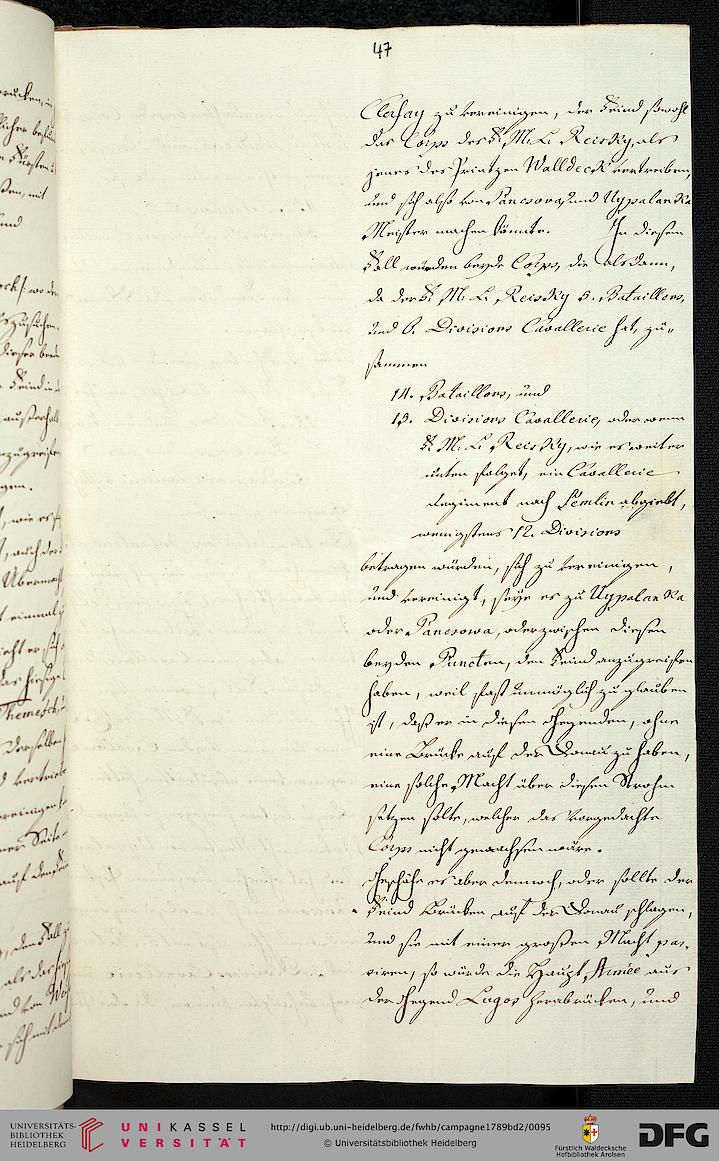 47
Clerfay zu vereinigen, der Feind sowohl
das Corps des F. M. L. Reisky, als
jenes des Printzen Walldeck vertreiben,
und sich also von Pancsova, und Uypalanka
Meister machen könnte. In diesem
Fall würden beyde Corps, die alsdann,
da der F. M. L. Reisky 5. Bataillons,
und 6. Divisions Cavallerie hat, zu-
sammen
14. Bataillons, und
15. Divisions Cavallerie, oder wenn
F. M. L. Reisky, wie es weiter
unten folget, ein Cavallerie
Regiment nach Semlin abgiebt,
wenigstens 12. Divisions
betragen würden, sich zu vereinigen,
und vereinigt, seye es zu Uypalanka
oder Pancsowa, oder zwischen diesen
beyden Puncten, den Feind anzugreiffen
haben, weil fast unmöglich zu glauben
ist, daß er in diesen Gegenden, ohne
eine Brücke auf der Donau zu haben,
eine solche Macht über diesen Strohm
setzen sollte, welcher das vorgedachte
Corps nicht gewachsen wäre.
Geschähe es aber dennoch, oder sollte der
Feind Brücken auf der Donau schlagen,
und sie mit einer großen Macht pas-
siren, so würde die Haupt Armée aus
der Gegend Lugos herabrücken, und
UNIVERSITÄTS-
BIBLIOTHEK
HEIDELBERG
UNIKASSEL
VERSITÄT
http://digi.ub.uni-heidelberg.de/fwhb/campagne1789bd2/0095
© Universitätsbibliothek Heidelberg
Fürstlich Waldecksche
Hofbibliothek Arolsen
DFG